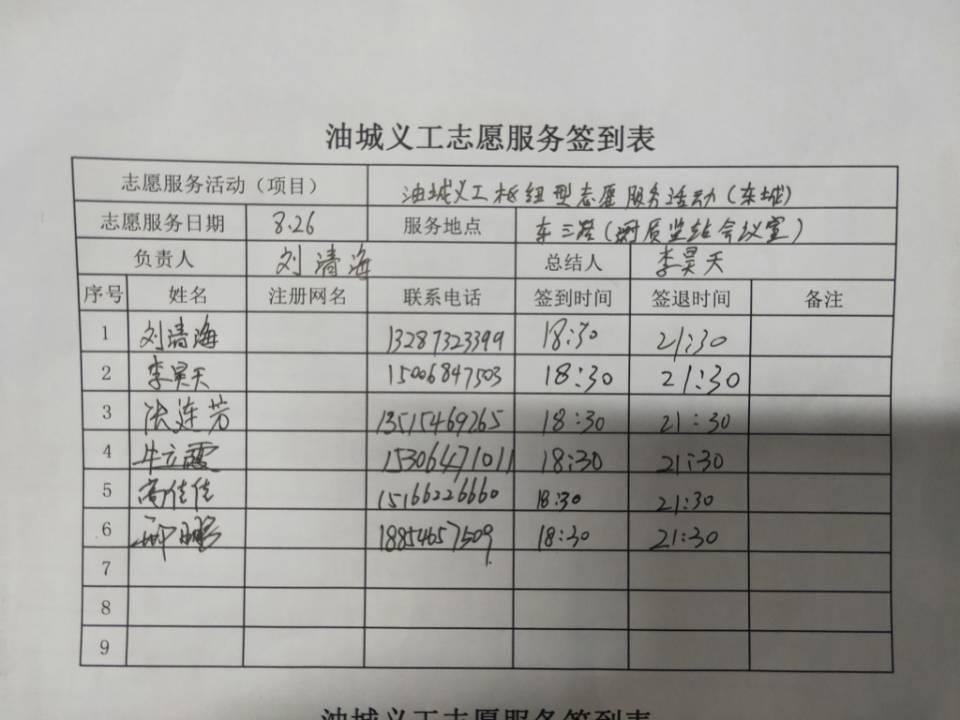 油城义工志愿服务签到表
志愿服务活动（项目） 油城义工枢纽型志愿服务活动（东城）
志愿服务日期 8.26 服务地点 东三路（ 质监站会议室）
负责人 刘清海 总结人 李昊天
序号 姓名 注册网名 联系电话 签到时间 签退时间 备注
1 刘清海 13287323399 18:30 21:30
2 李昊天 15006847503 18:30 21:30
3 张连芳 13515469265 18:30 21:30
4 牛立霞 15306471011 18:30 21:30
5 高佳佳 15166226660 18:30 21:30
6 18854657509 18:30 21:30
7
8
9
油城义工志愿服务签到表